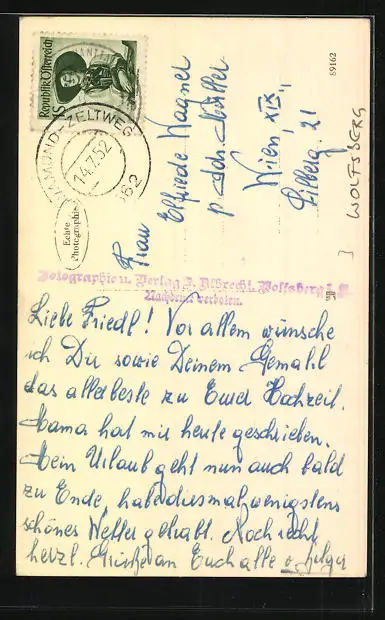 Republik Österreich
UNZMARKT-ZELTWEG
14.7.52
Echte
Photographie
Frau
Elfriede Wagner
p Adr. Müller
Wien, XIX.,
Silberg. 21
89162
WOLFSBERG
Photographie u. Verlag J. Albrecht, Wolfsberg i. K.
Nachdruck verboten.
Liebe Friedl! Vor allem wünsche
ich Dir sowie Deinem Gemahl
das allerbeste zu Eurer Hochzeit.
Mama hat mir heute geschrieben.
Mein Urlaub geht nun auch bald
zu Ende, habe diesmal wenigstens
schönes Wetter gehabt. Noch recht
herzl. Grüße an Euch alle v. Helga